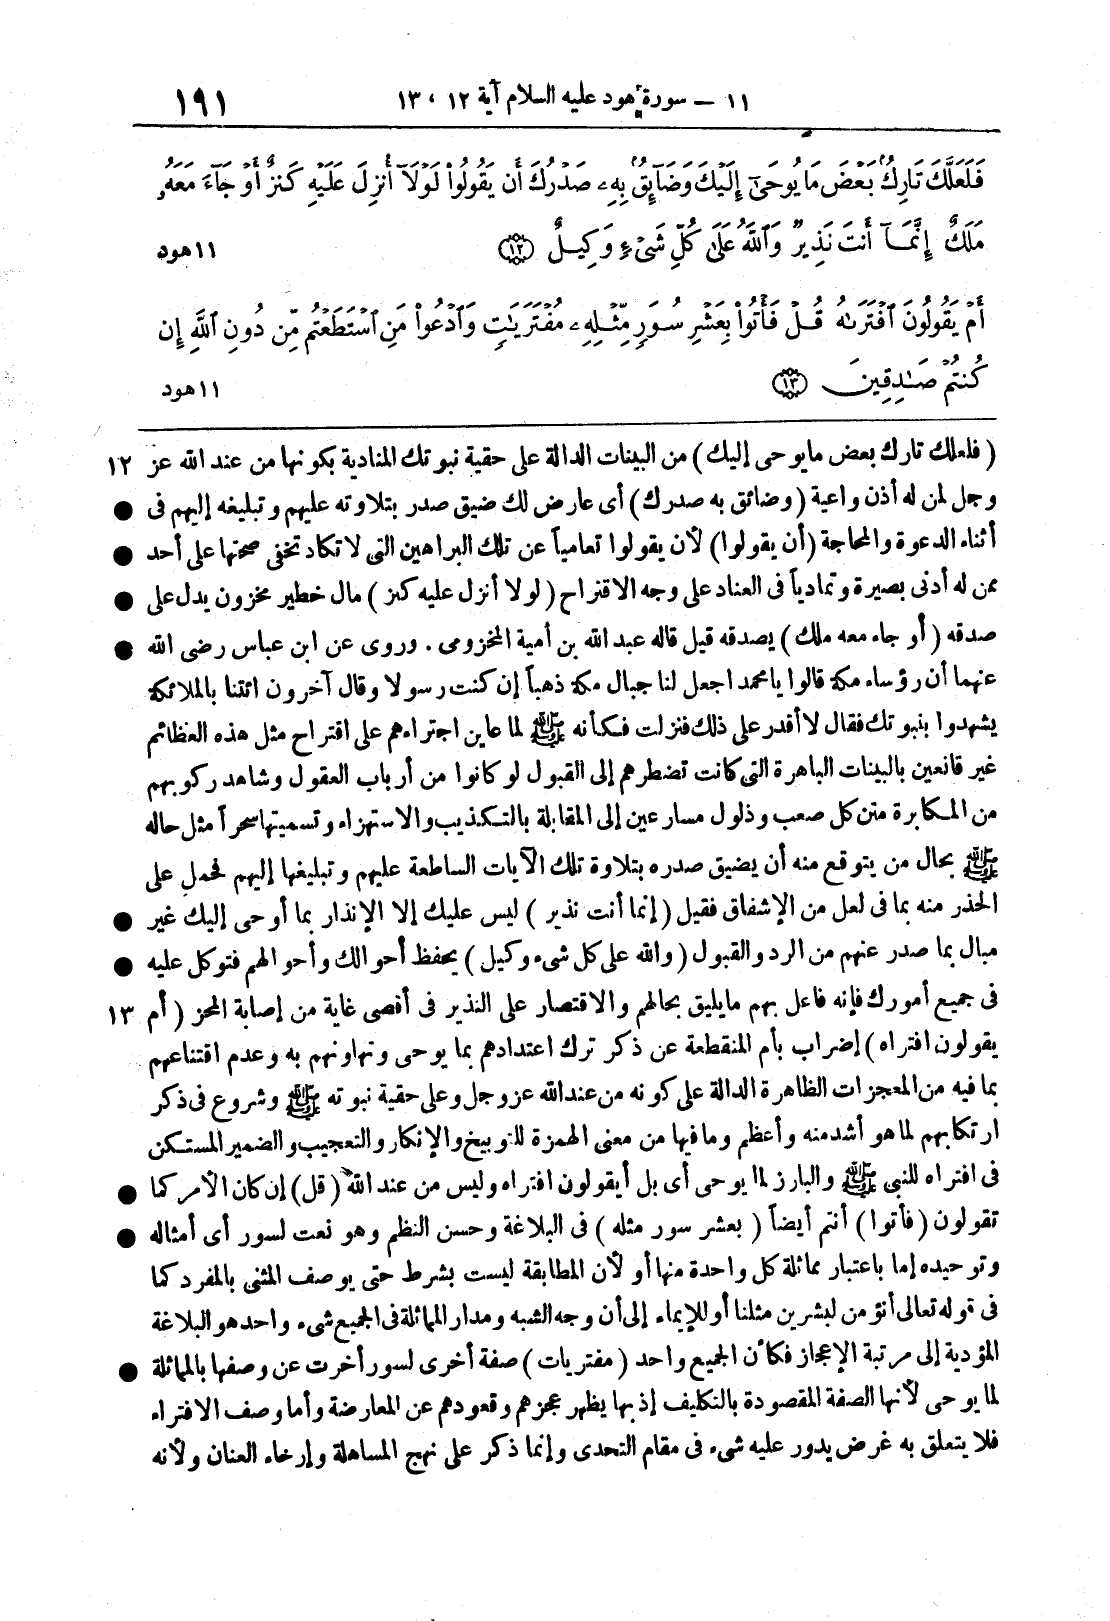 ١١ – سورة هود عليه السلام آية ١٢ ، ١٣ ١٩١
فَلَعَلَّكَ تَارِكُۢ بَعْضَ مَا يُوحَىٰٓ إِلَيْكَ وَضَآئِقُۢ بِهِۦ صَدْرُكَ أَن يَقُولُوا۟ لَوْلَآ أُنزِلَ عَلَيْهِ كَنزٌ أَوْ جَآءَ مَعَهُۥ
مَلَكٌ إِنَّمَآ أَنتَ نَذِيرٌ وَٱللَّهُ عَلَىٰ كُلِّ شَىْءٍ وَكِيلٌ ١٢ ١١ هود
أَمْ يَقُولُونَ ٱفْتَرَىٰهُ قُلْ فَأْتُوا۟ بِعَشْرِ سُوَرٍ مِّثْلِهِۦ مُفْتَرَيَٰتٍ وَٱدْعُوا۟ مَنِ ٱسْتَطَعْتُم مِّن دُونِ ٱللَّهِ إِن
كُنتُمْ صَٰدِقِينَ ١٣ ١١ هود
( فلعلك تارك بعض ما يوحى إليك ) من البينات الدالة على حقية نبوتك المنادية بكونها من عند الله عز ١٢
وجل لمن له أذن واعية ( وضائق به صدرك ) أى عارض لك ضيق صدر بتلاوته عليهم وتبليغه إليهم فى ●
أثناء الدعوة والمحاجة ( أن يقولوا ) لأن يقولوا تعامياً عن تلك البراهين التى لا تكاد تخفى صحتها على أحد ●
ممن له أدنى بصيرة وتمادياً فى العناد على وجه الاقتراح ( لولا أنزل عليه كنز ) مال خطير مخزون يدل على ●
صدقه ( أو جاء معه ملك ) يصدقه قيل قاله عبد الله بن أمية المخزومى . وروى عن ابن عباس رضى الله ●
عنهما أن رؤساء مكة قالوا يا محمد اجعل لنا جبال مكة ذهباً إن كنت رسولا وقال آخرون ائتنا بالملائكة
يشهدوا بنبوتك فقال لا أقدر على ذلك فنزلت فكأنه ﷺ لما عاين اجتراءهم على اقتراح مثل هذه العظائم
غير قانعين بالبينات الباهرة التى كانت تضطرهم إلى القبول لو كانوا من أرباب العقول وشاهد ركوبهم
من المكابرة متن كل صعب وذلول مسارعين إلى المقابلة بالتكذيب والاستهزاء وتسميتها سحراً مثل حاله
ﷺ بحال من يتوقع منه أن يضيق صدره بتلاوة تلك الآيات الساطعة عليهم وتبليغها إليهم فحمل على
الحذر منه بما فى لعل من الإشفاق فقيل ( إنما أنت نذير ) ليس عليك إلا الإنذار بما أوحى إليك غير ●
مبال بما صدر عنهم من الرد والقبول ( والله على كل شىء وكيل ) يحفظ أحوالك وأحوالهم فتوكل عليه ●
فى جميع أمورك فإنه فاعل بهم ما يليق بحالهم والاقتصار على النذير فى أقصى غاية من إصابة المحز ( أم ١٣
يقولون افتراه ) إضراب بأم المنقطعة عن ذكر ترك اعتدادهم بما يوحى وتهاونهم به وعدم اقتناعهم
بما فيه من المعجزات الظاهرة الدالة على كونه من عند الله عز وجل وعلى حقية نبوته ﷺ وشروع فى ذكر
ارتكابهم لما هو أشد منه وأعظم وما فيها من معنى الهمزة للتوبيخ والإنكار والتعجيب والضمير المستكن
فى افتراه للنبى ﷺ والبارز لما يوحى أى بل أيقولون افتراه وليس من عند الله ( قل ) إن كان الأمر كما ●
تقولون ( فأتوا ) أنتم أيضاً ( بعشر سور مثله ) فى البلاغة وحسن النظم وهو نعت لسور أى أمثاله ●
وتوحيده إما باعتبار مماثلة كل واحدة منها أو لأن المطابقة ليست بشرط حتى يوصف المثنى بالمفرد كما
فى قوله تعالى أنؤمن لبشرين مثلنا أو للإيماء إلى أن وجه الشبه ومدار المماثلة فى الجميع شىء واحد هو البلاغة
المؤدية إلى مرتبة الإعجاز فكأن الجميع واحد ( مفتريات ) صفة أخرى لسور أخرت عن وصفها بالمماثلة ●
لما يوحى لأنها الصفة المقصودة بالتكليف إذ بها يظهر عجزهم وقعودهم عن المعارضة وأما وصف الافتراء
فلا يتعلق به غرض يدور عليه شىء فى مقام التحدى وإنما ذكر على نهج المساهلة وإرخاء العنان ولأنه